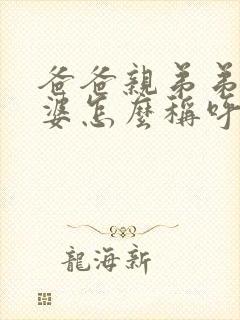 爸爸親弟弟
婆怎麼稱呼
龍海新